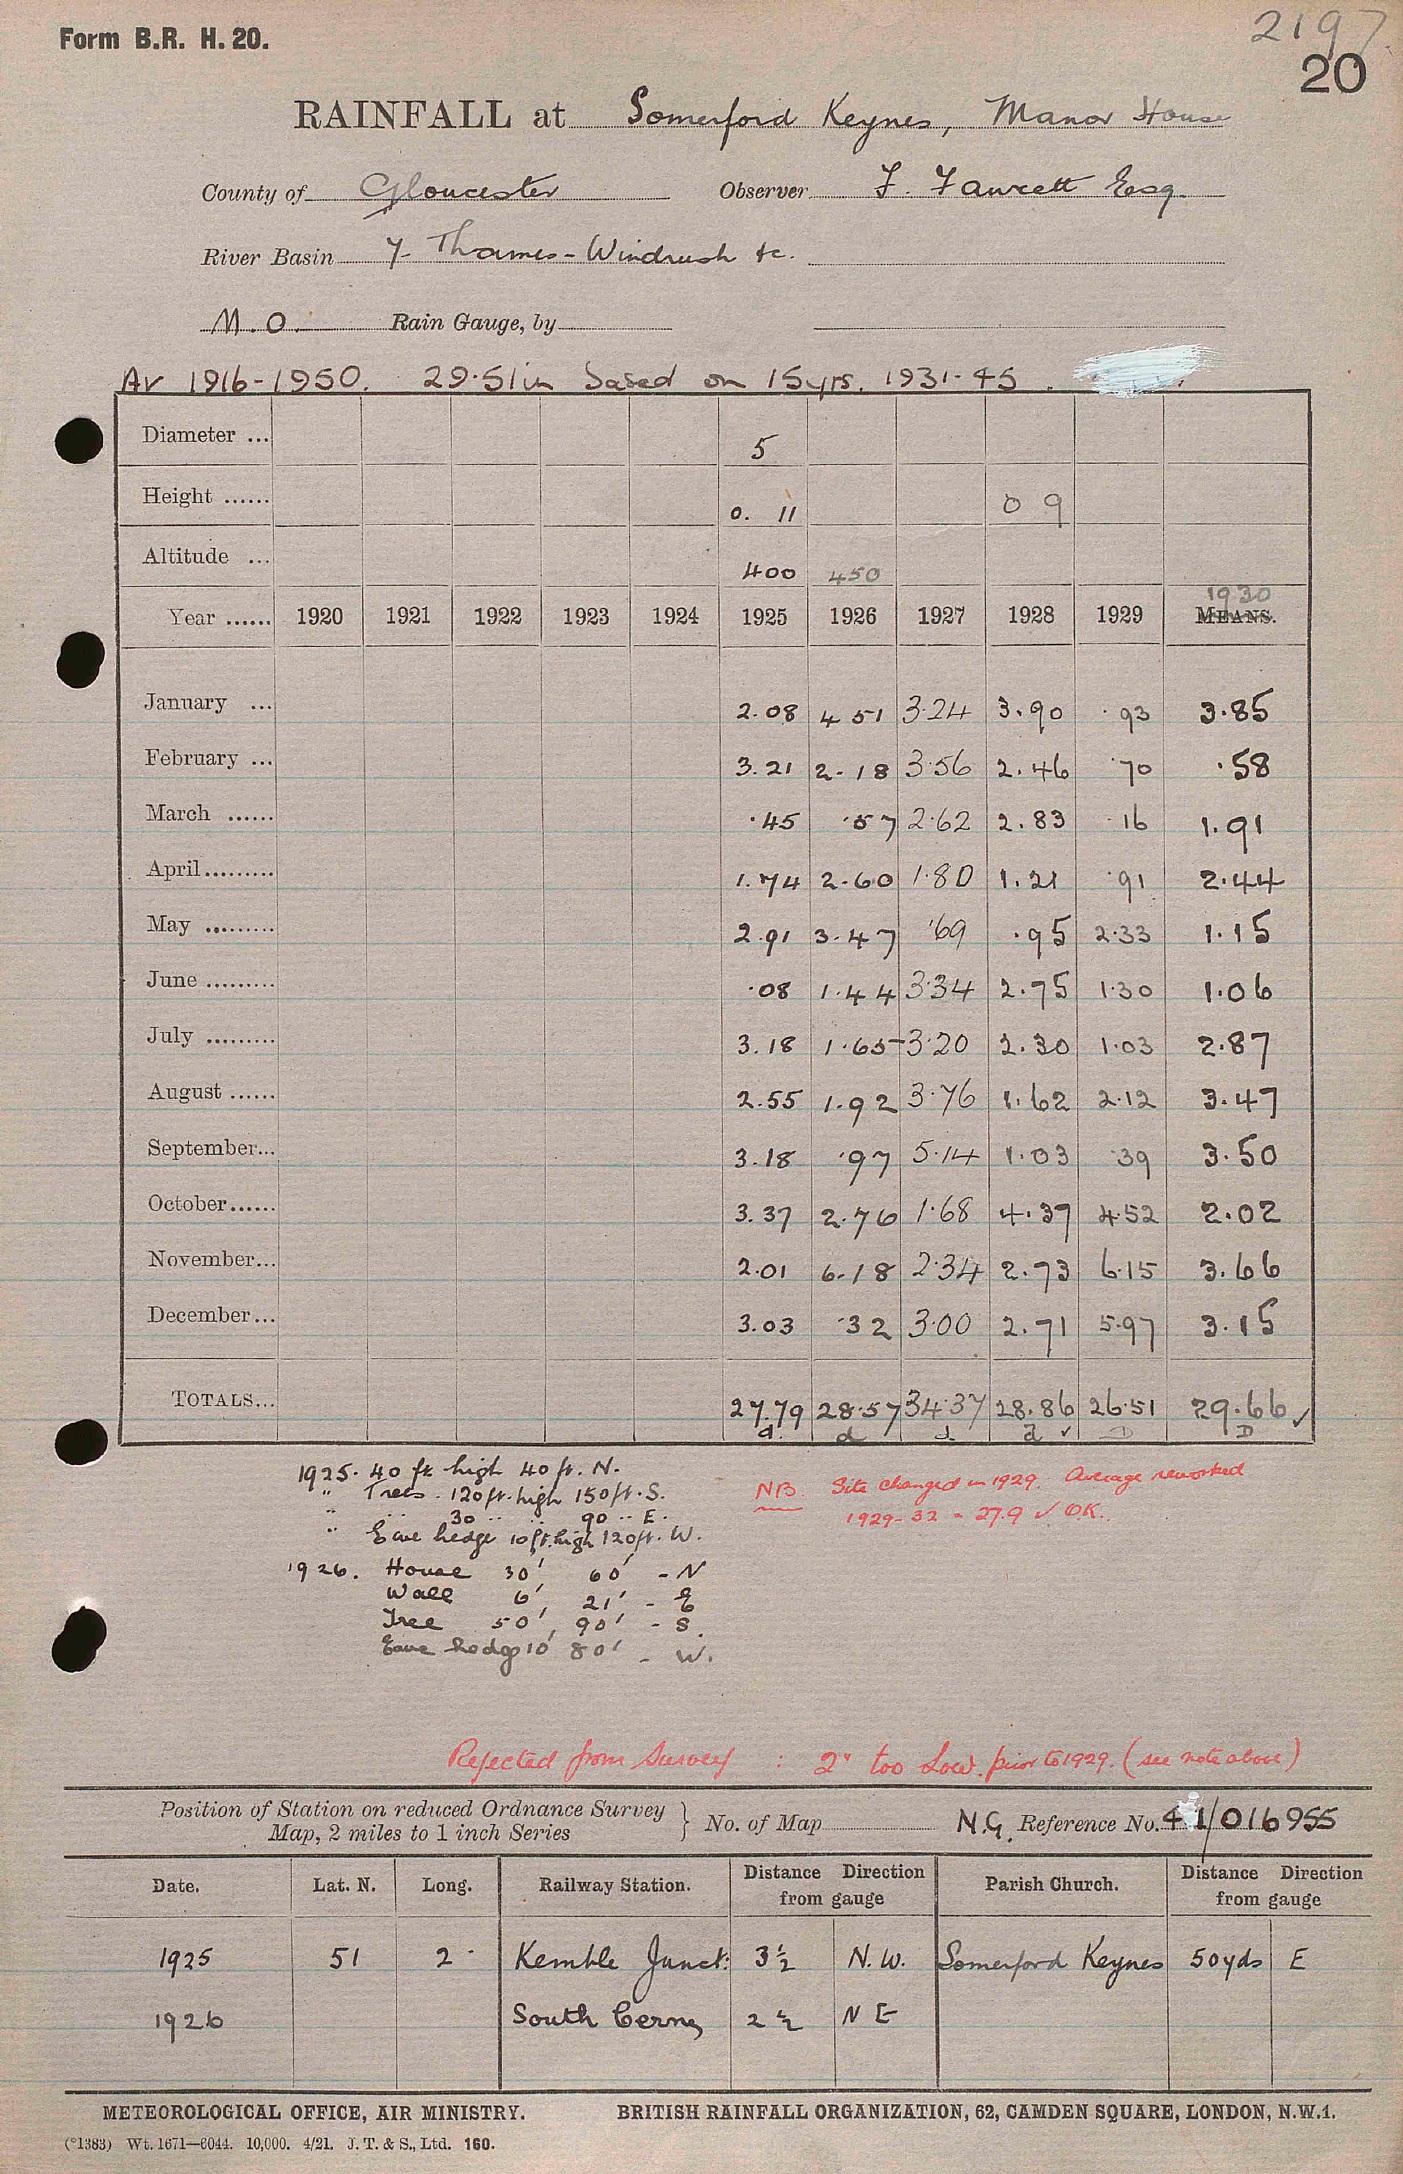 Form B.R. H. 20.
2197
20
RAINFALL at Somerford Keynes, Manor House
County of Gloucester Observer F. Fawcett Esq.
River Basin 7- Thames - Windrush &c.
M.O. Rain Gauge, by
Av 1916-1950. 29.51in based on 15yrs. 1931-45.
Diameter ... 5
Height ...... 0. 11 0 9
Altitude ... 400 450
1930
Year ...... 1920 1921 1922 1923 1924 1925 1926 1927 1928 1929 MEANS.
January ... 2.08 4 51 3.24 3.90 .93 3.85
February ... 3.21 2.18 3.56 2.46 .70 .58
March ...... .45 .57 2.62 2.83 .16 1.91
April......... 1.74 2.60 1.80 1.21 .91 2.44
May ......... 2.91 3.47 .69 .95 2.33 1.15
June ......... .08 1.44 3.34 2.75 1.30 1.06
July ......... 3.18 1.65 3.20 2.30 1.03 2.87
August ...... 2.55 1.92 3.76 1.62 2.12 3.47
September... 3.18 .97 5.14 1.03 .39 3.50
October...... 3.37 2.76 1.68 4.37 4.52 2.02
November... 2.01 6.18 2.34 2.73 6.15 3.66
December... 3.03 .32 3.00 2.71 5.97 3.15
TOTALS... 27.79 28.57 34.37 28.86 26.51 29.66 ✓
d. d d d ✓ D D
1925. 40 ft high 40 ft. N.
" Trees. 120 ft. high 150 ft. S.
" " 30 " " 90 " E.
" hedge 10 ft. high 120 ft. W.
1926. House 30' 60' - N
Wall 6' 21' - E
Tree 50' 90' - S.
hedge 10' 80' - W.
NB. Site changed in 1929. Average reworked
1929-32 = 27.9 ✓ OK.
Rejected from Survey : 2" too low. prior to 1929. (see note above)
Position of Station on reduced Ordnance Survey
Map, 2 miles to 1 inch Series } No. of Map N.G. Reference No. 41/016955
Date. Lat. N. Long. Railway Station. Distance Direction from gauge Parish Church. Distance Direction from gauge
1925 51 2 Kemble Junct: 3½ N.W. Somerford Keynes 50yds E
1926 South Cerney 2½ N E
METEOROLOGICAL OFFICE, AIR MINISTRY. BRITISH RAINFALL ORGANIZATION, 62, CAMDEN SQUARE, LONDON, N.W.1.
(*1383) Wt. 1671—6044. 10,000. 4/21. J. T. & S., Ltd. 160.